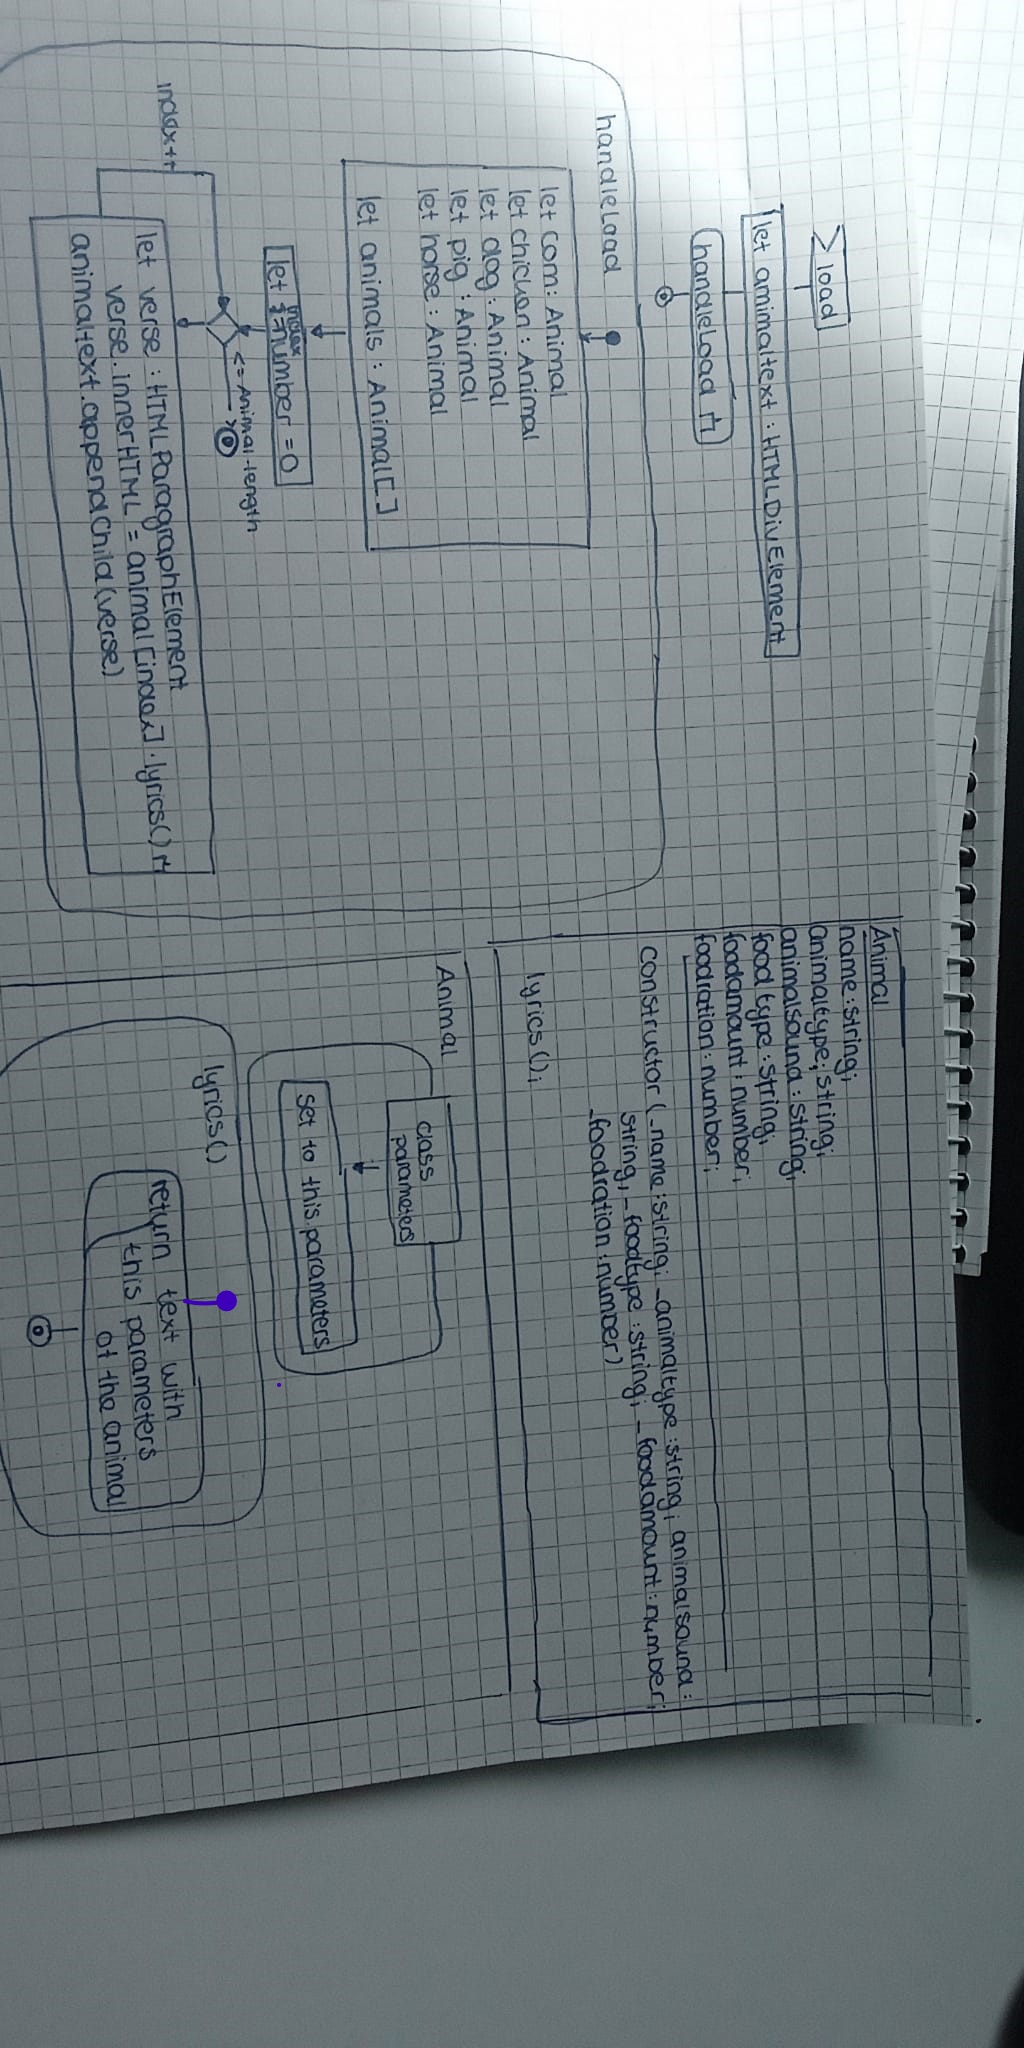 load
let amimaltext : HTMLDivElement
handleLoad
handleLoad
let com : Animal
let chicken : Animal
let dog : Animal
let pig : Animal
let horse : Animal
let animals : Animal[]
index
let i = number = 0
<= Animal.length
index++
let verse : HTMLParagraphElement
verse.innerHTML = animal[index].lyrics()
animaltext.appendChild(verse)
Animal
name : string;
animaltype; string;
animalsound : string;
food type : string;
foodamount : number;
foodration : number;
constructor (_name : string; _animaltype : string; animalsound :
string, _foodtype : string; _foodamount : number;
_foodration : number)
lyrics();
Animal
class
parameters
set to this.parameters
lyrics()
return text with
this parameters
of the animal